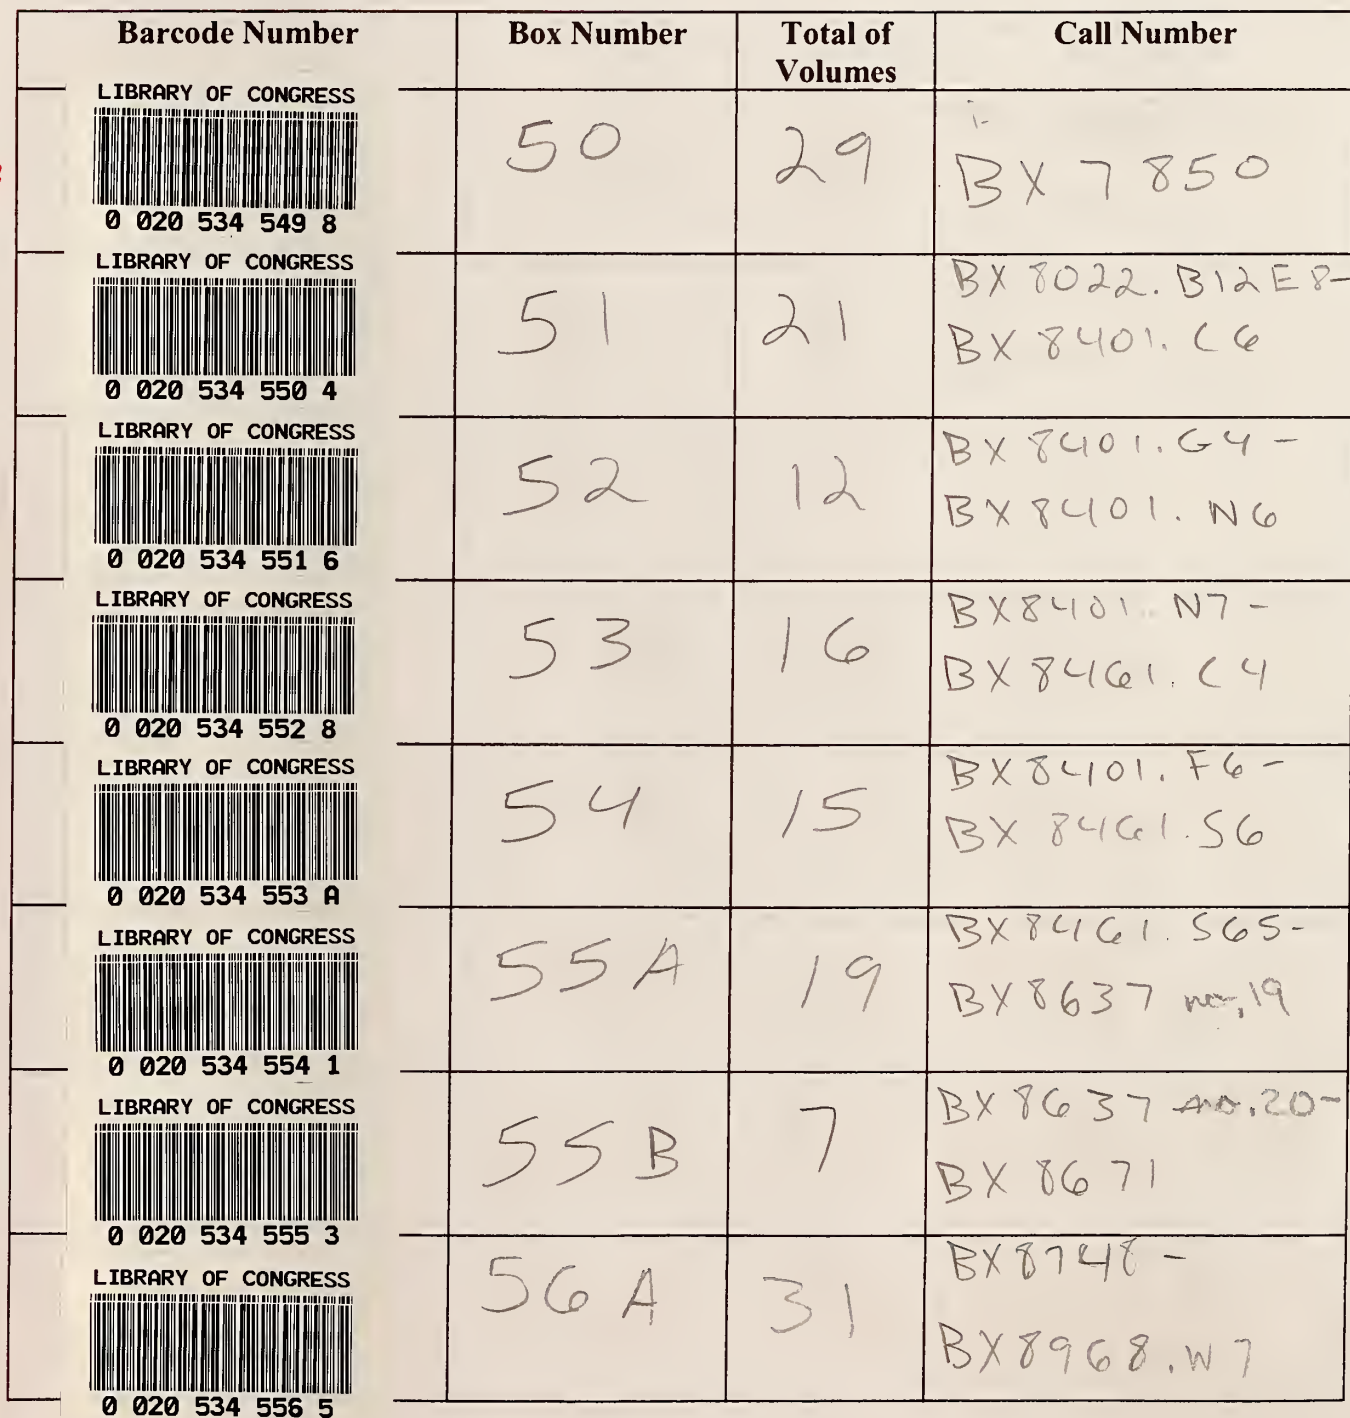 Barcode Number Box Number Total of Volumes Call Number
LIBRARY OF CONGRESS
0 020 534 549 8
50 29
BX 7850
LIBRARY OF CONGRESS
0 020 534 550 4
51 21
BX 8022. B12E8-
BX 8401. C6
LIBRARY OF CONGRESS
0 020 534 551 6
52 12
BX 8401. G4 -
BX 8401. N6
LIBRARY OF CONGRESS
0 020 534 552 8
53 16
BX8401. N7 -
BX 8461. C4
LIBRARY OF CONGRESS
0 020 534 553 A
54 15
BX8401. F6 -
BX 8461. S6
LIBRARY OF CONGRESS
0 020 534 554 1
55A 19
BX8461. S65-
BX8637 no. 19
LIBRARY OF CONGRESS
0 020 534 555 3
55B 7
BX 8637 no. 20-
BX 8671
LIBRARY OF CONGRESS
0 020 534 556 5
56A 31
BX8748 -
BX8968. W7